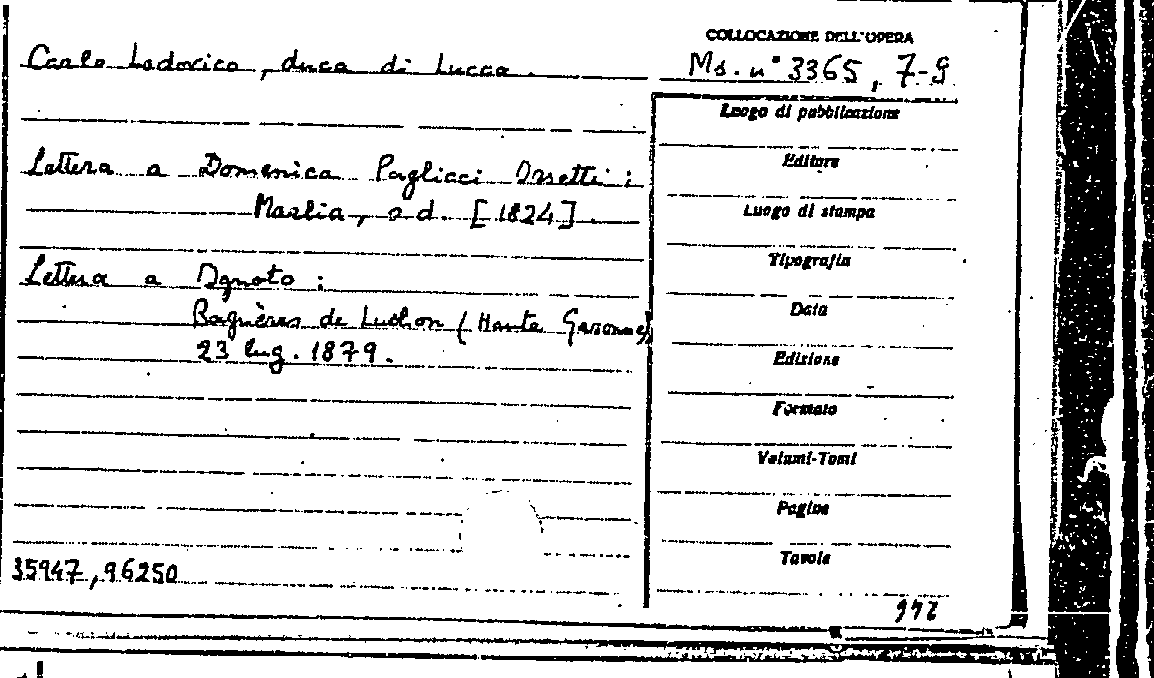 COLLOCAZIONE DELL'OPERA
Carlo Lodovico, duca di Lucca.
Ms. n° 3365, 7-9
Luogo di pubblicazione
Editore
Luogo di stampa
Tipografia
Data
Edizione
Formato
Volumi-Tomi
Pagine
Tavole
Lettera a Domenica Pagliacci Orsetti:
Marlia, s d. [1824].
Lettera a Ignoto:
Bagnères de Luchon (Haute Garonne)
23 lug. 1879.
35947, 96250